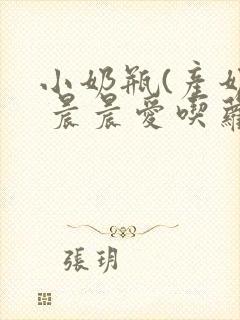 小奶瓶(產奶
晨晨愛喫蘿
張玥